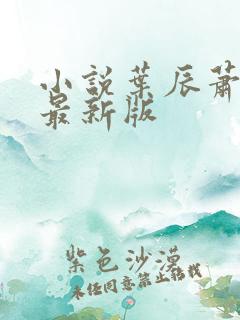 小说叶辰萧
最新版
紫色沙漠
未经同意禁止转载